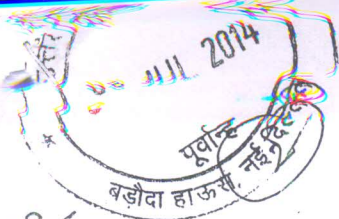 JUL 2014
पूर्वान्ह
बड़ौदा हाऊस, नई दिल्ली